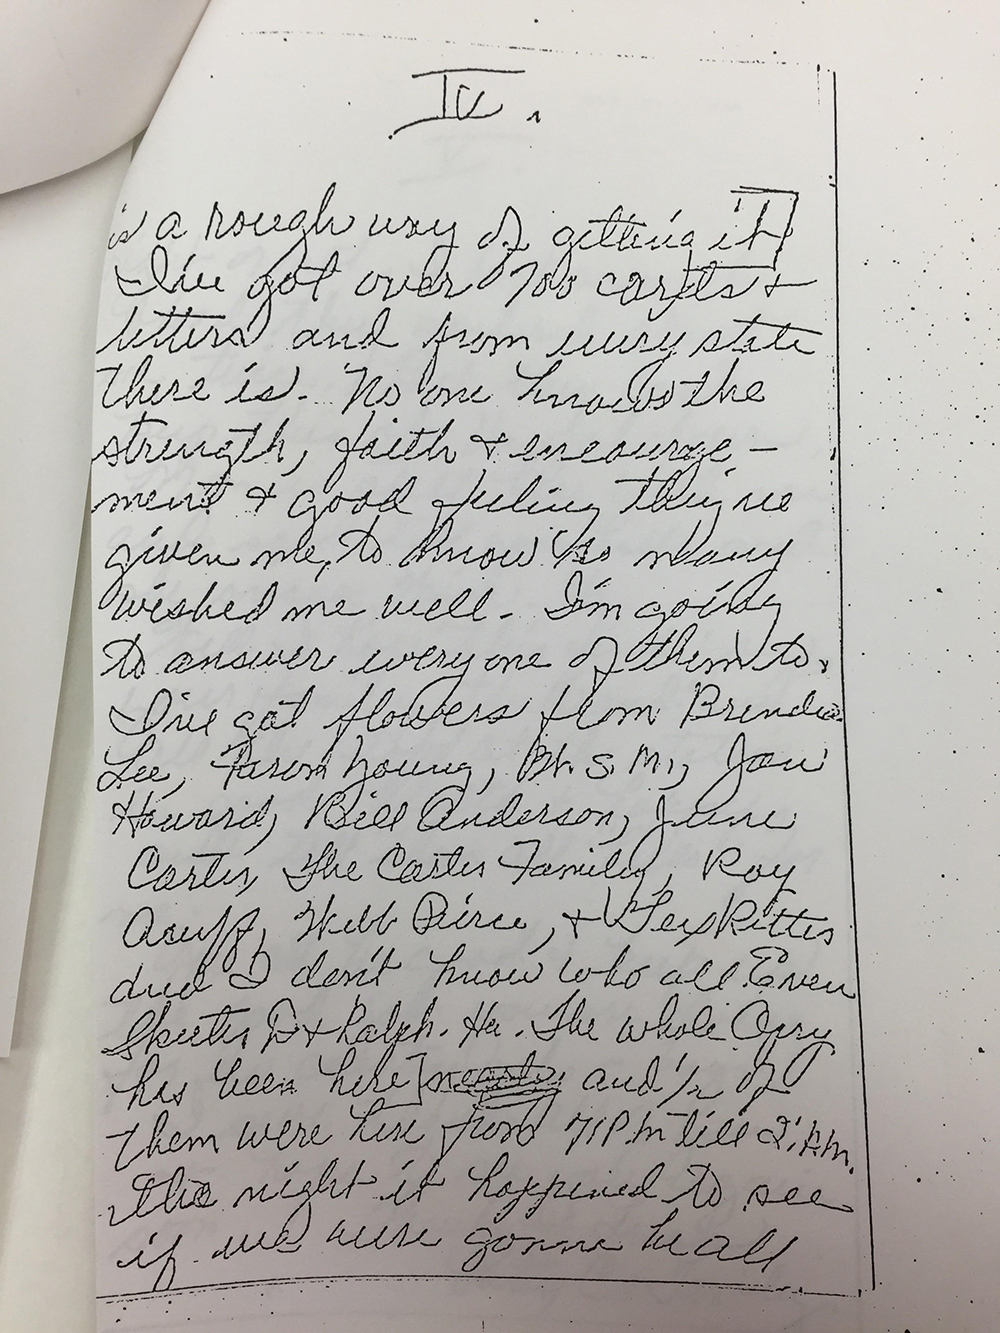 IV.
is a rough way of getting it
I've got over 700 cards &
letters and from every state
there is. No one knows the
strength, faith & encourage-
ment & good feeling they've
given me, to know so many
wished me well. I'm going
to answer every one of them to.
I've got flowers from Brenda
Lee, Faron Young, M.S.M., Jan
Howard, Bill Anderson, June
Carter, The Carter Family, Roy
Acuff, Webb Pirce, & Tex Ritter
and I don't know who all. Even
Skeeter D & Ralph. Ha. The whole Opry
has been here nearly and 1/2 of
them were here from 7:PM till 2:AM.
the night it happened to see
if we were gonna be all